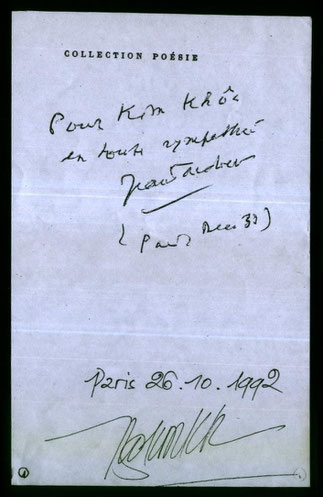 COLLECTION POÉSIE
Pour Kim Khôi
en toute sympathie
Jean Tardieu
(Paris
Paris 26.10.1992